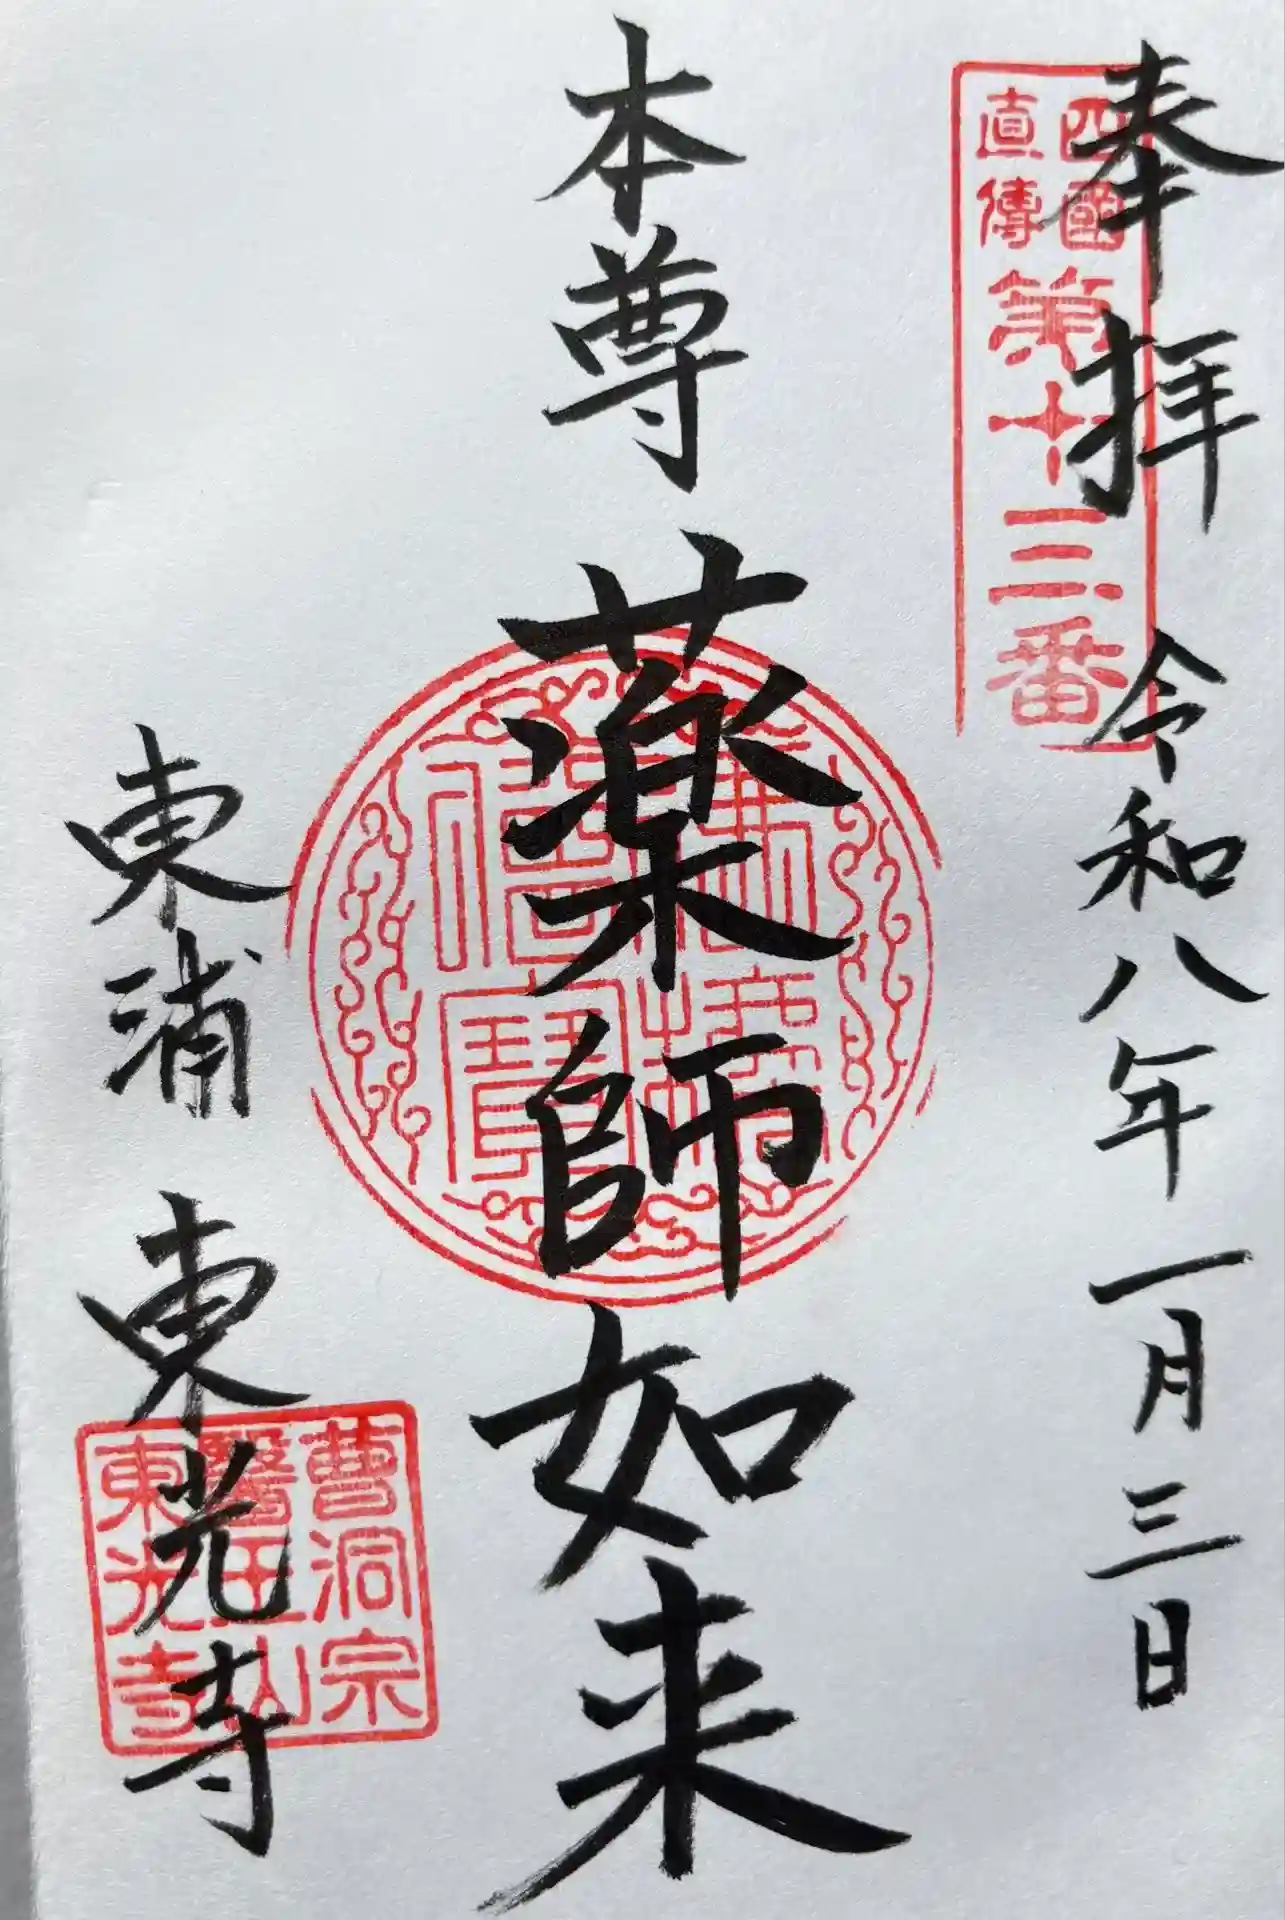 奉拝 令和八年一月三日
四國
直傳
第十三番
本尊 薬師如来
佛法僧寳
東浦 東光寺
曹洞宗
醫王山
東光寺